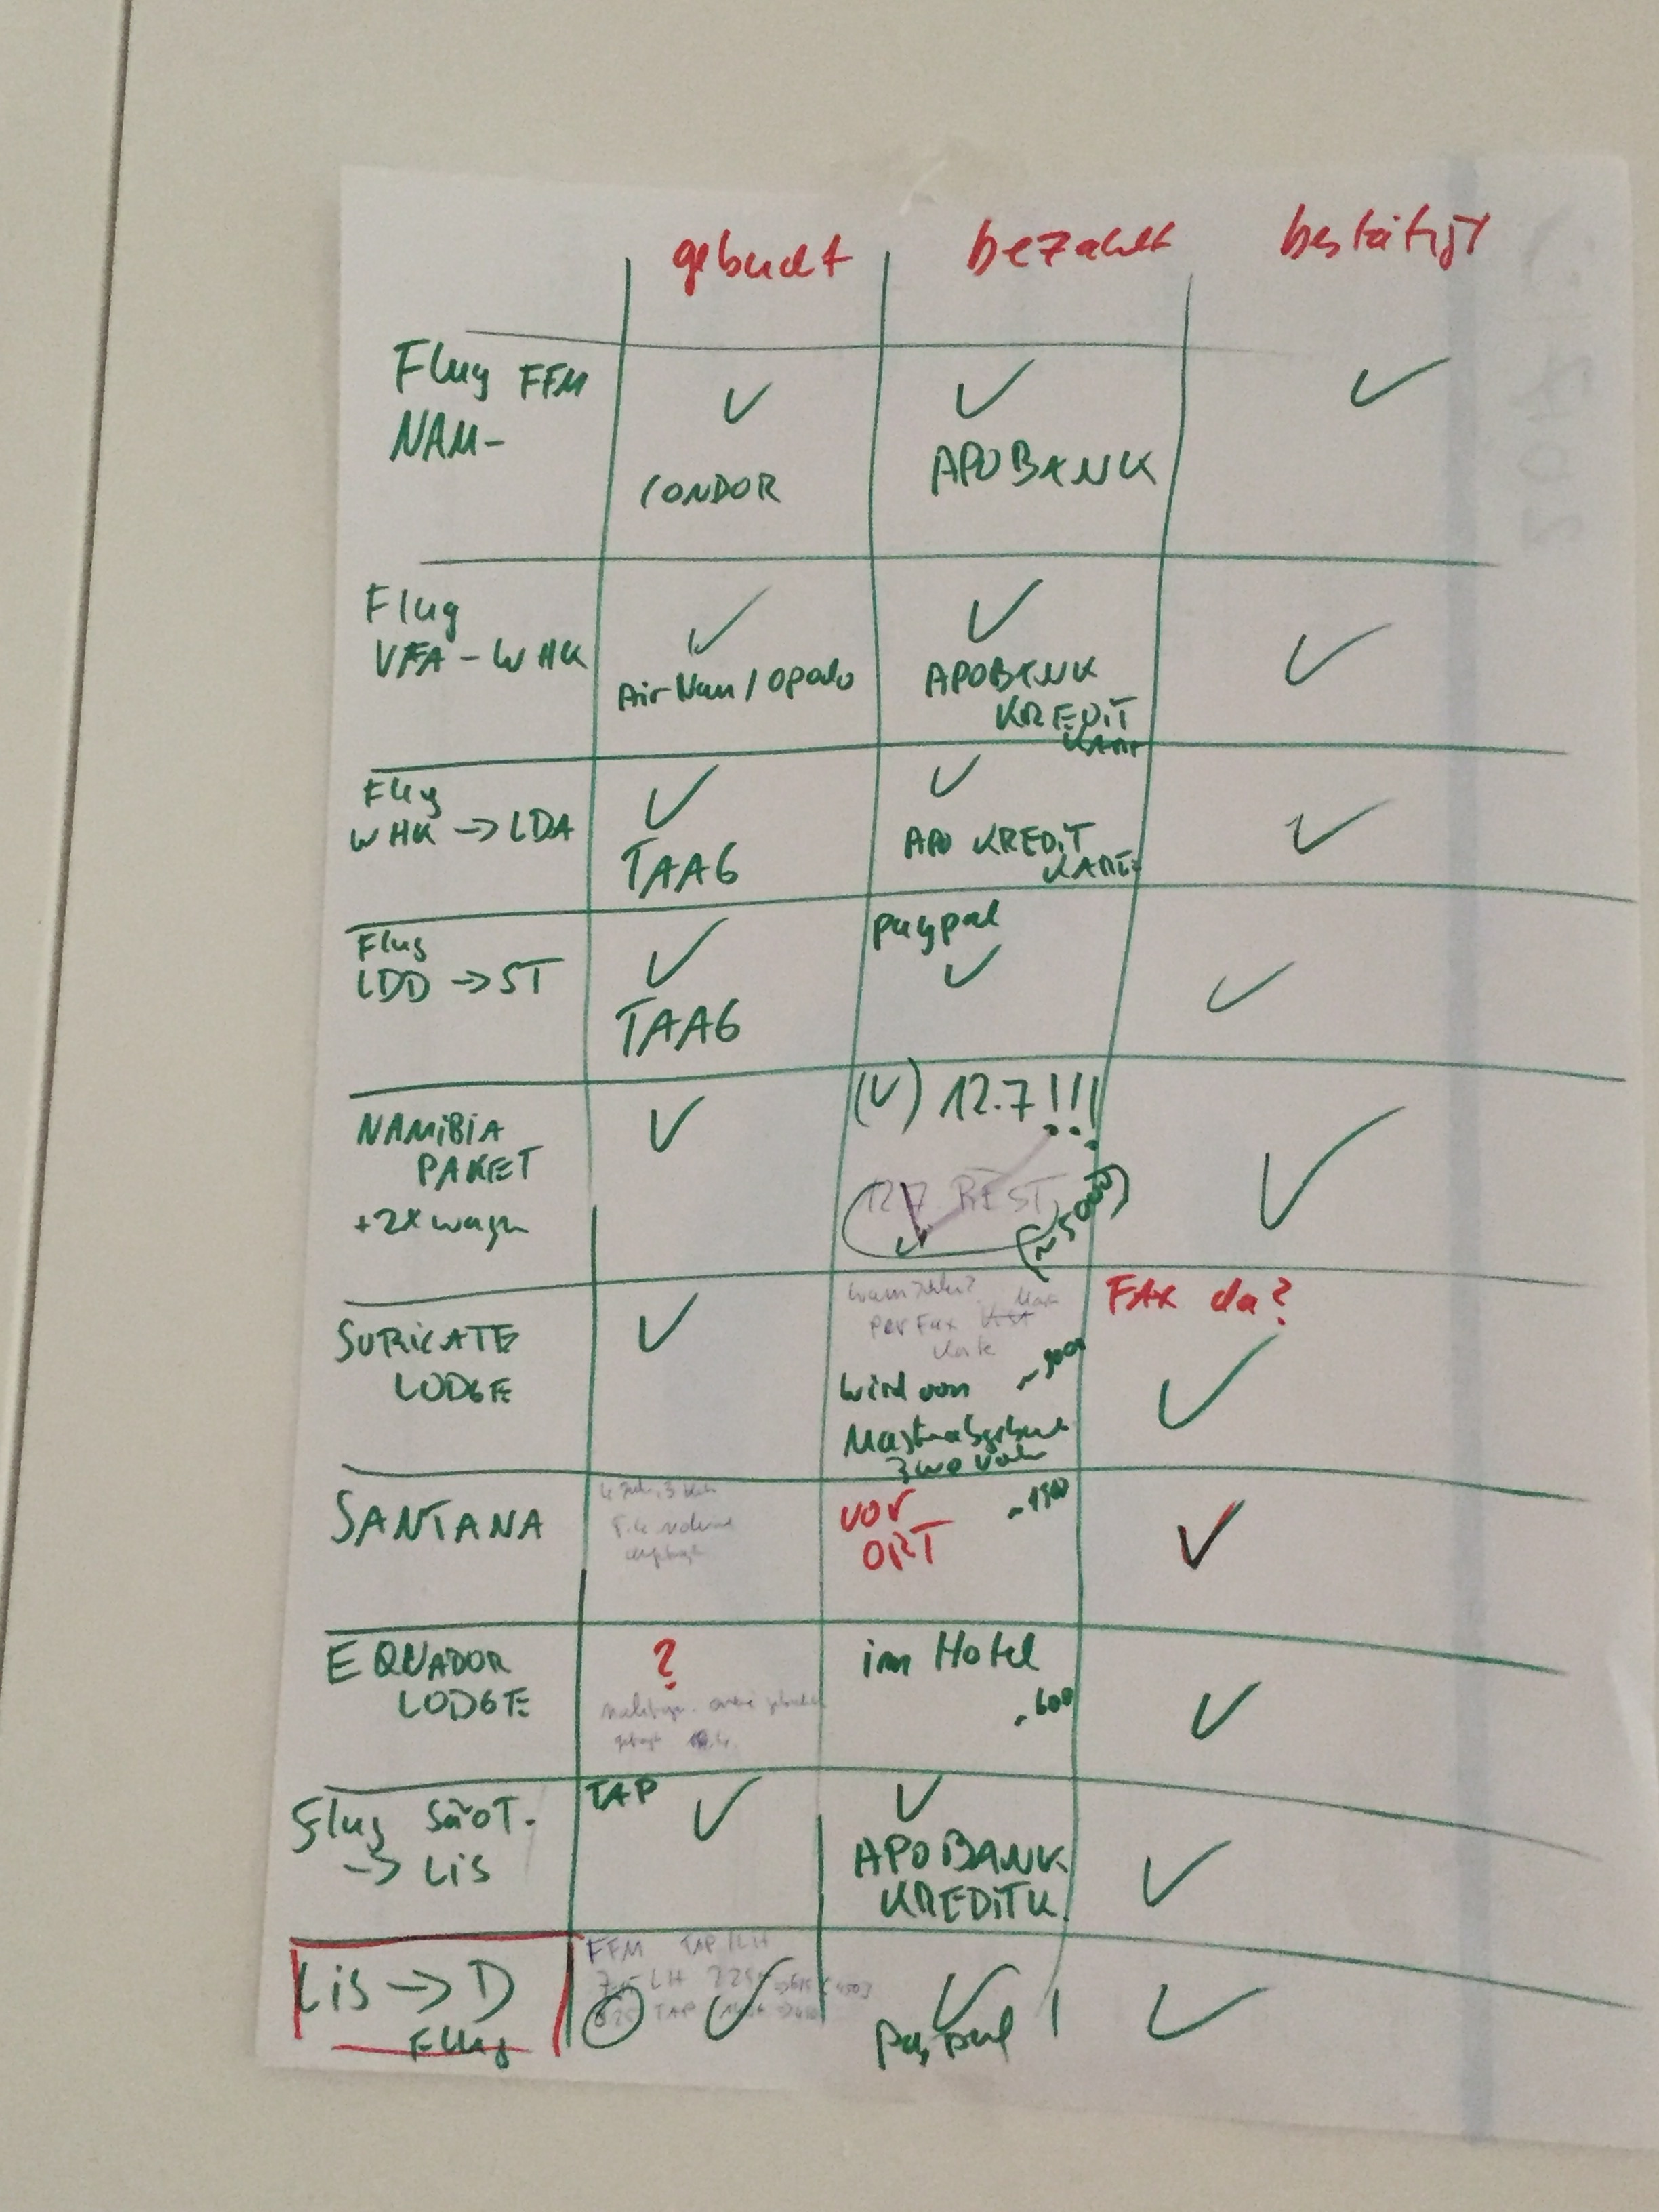 gebucht bezahlt bestätigt
Flug FFM
NAM-
✓ ✓ ✓
CONDOR APOBANK
Flug
VFA - WHK
✓ ✓ ✓
Air Nam / Opodo APOBANK
KREDIT
KARTE
Flug
WHK → LDA
✓ ✓ ✓
TAAG APO KREDIT
KARTE
Flug
LDD → ST
✓ paypal ✓ ✓
TAAG
NAMIBIA
PAKET
+2x wagen
✓ (✓) 12.7 !!! ✓
12.7 REST
✓ (~5000)
SURICATE
LODGE
✓
per Fax
Karte
wird von
FAX da?
✓
SANTANA
VOR
ORT
✓
EQUADOR
LODGE
?
im Hotel
~600
✓
Flug SãoT.
→ LiS
TAP ✓ ✓ ✓
APOBANK
KREDITK.
LiS → D
Flug
FFM TAP/LH
LH
TAP
✓ ✓ ✓
Paypal